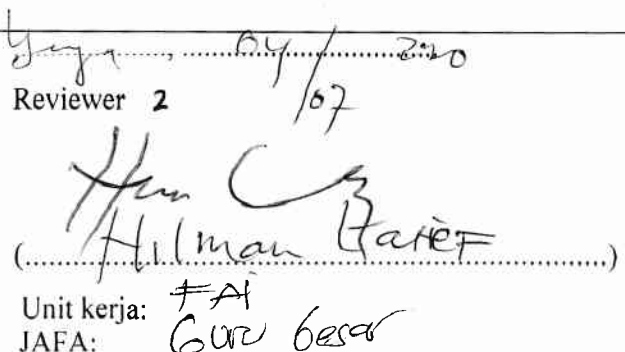 Yogya, 04/07 2020
Reviewer 2
(Hilman Latief)
Unit kerja: FAI
JAFA: Guru besar